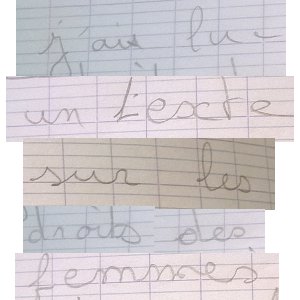 j'ai lu
un texte
sur les
droits des
femmes